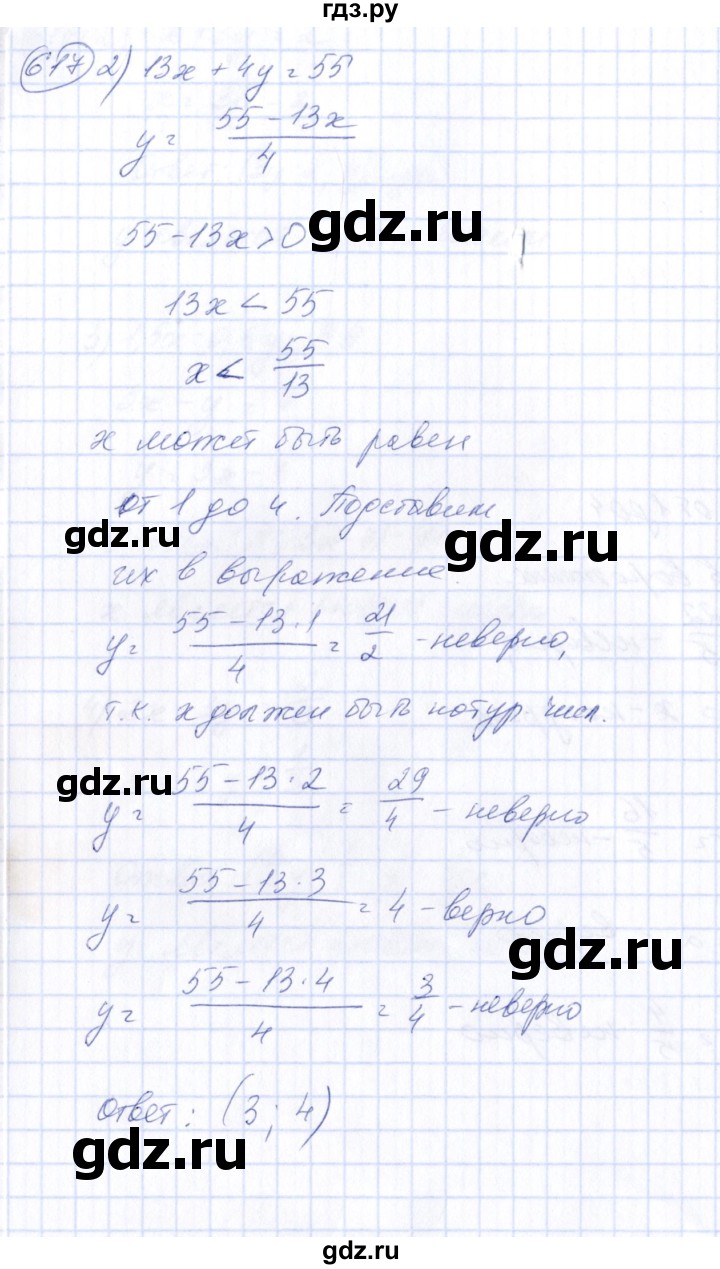 гдз.ру
617 2) 13x + 4y = 55
y = (55 - 13x)/4
55 - 13x > 0 gdz.ru
13x < 55
x < 55/13
x может быть равен
от 1 до 4. Подставим
gdz.ru gdz.ru
их в выражение.
y = (55 - 13·1)/4 = 21/2 - неверно,
т.к. x должен быть натур. числ.
gdz.ru
y = (55 - 13·2)/4 = 29/4 - неверно
y = (55 - 13·3)/4 = 4 - верно
gdz.ru
y = (55 - 13·4)/4 = 3/4 - неверно
Ответ: (3; 4)
gdz.ru
gdz.ru